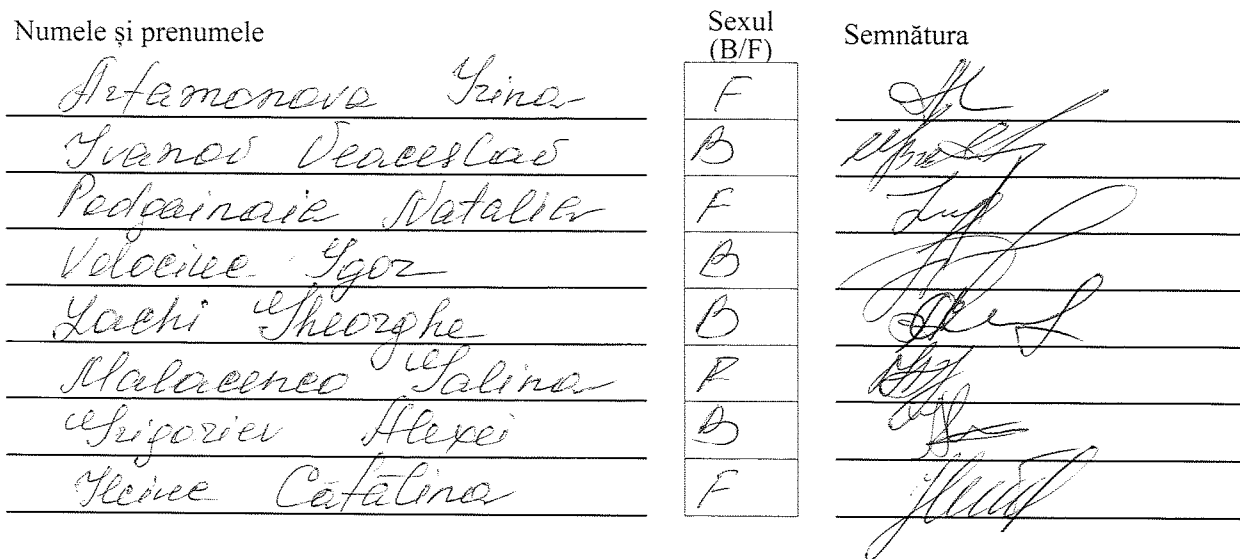 Numele și prenumele Sexul (B/F) Semnătura
Artamonova Irina F
Ivanov Veaceslav B
Podgainaia Natalia F
Igor B
Lachi Gheorghe B
Malacenco Galina F
Grigoriev Alexei B
Catălina F